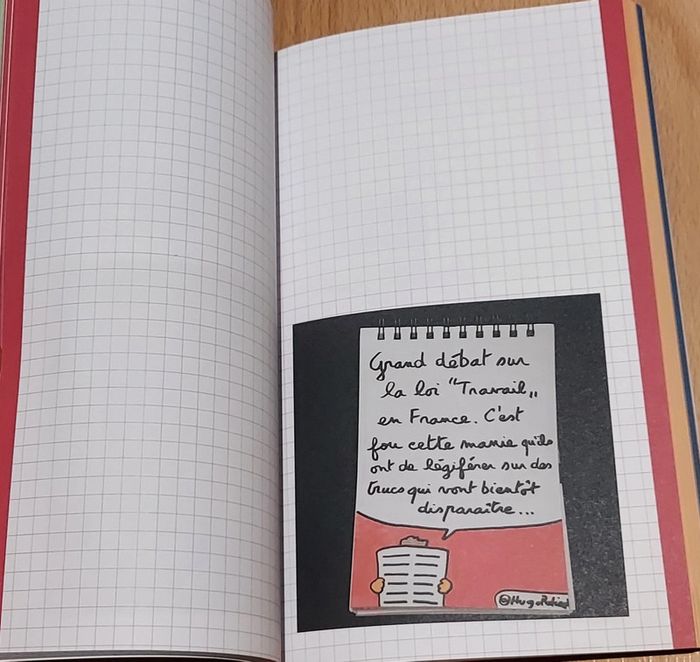 Grand débat sur
la loi "Travail"
en France. C'est
fou cette manie qu'ils
ont de légiférer sur des
trucs qui vont bientôt
disparaître...